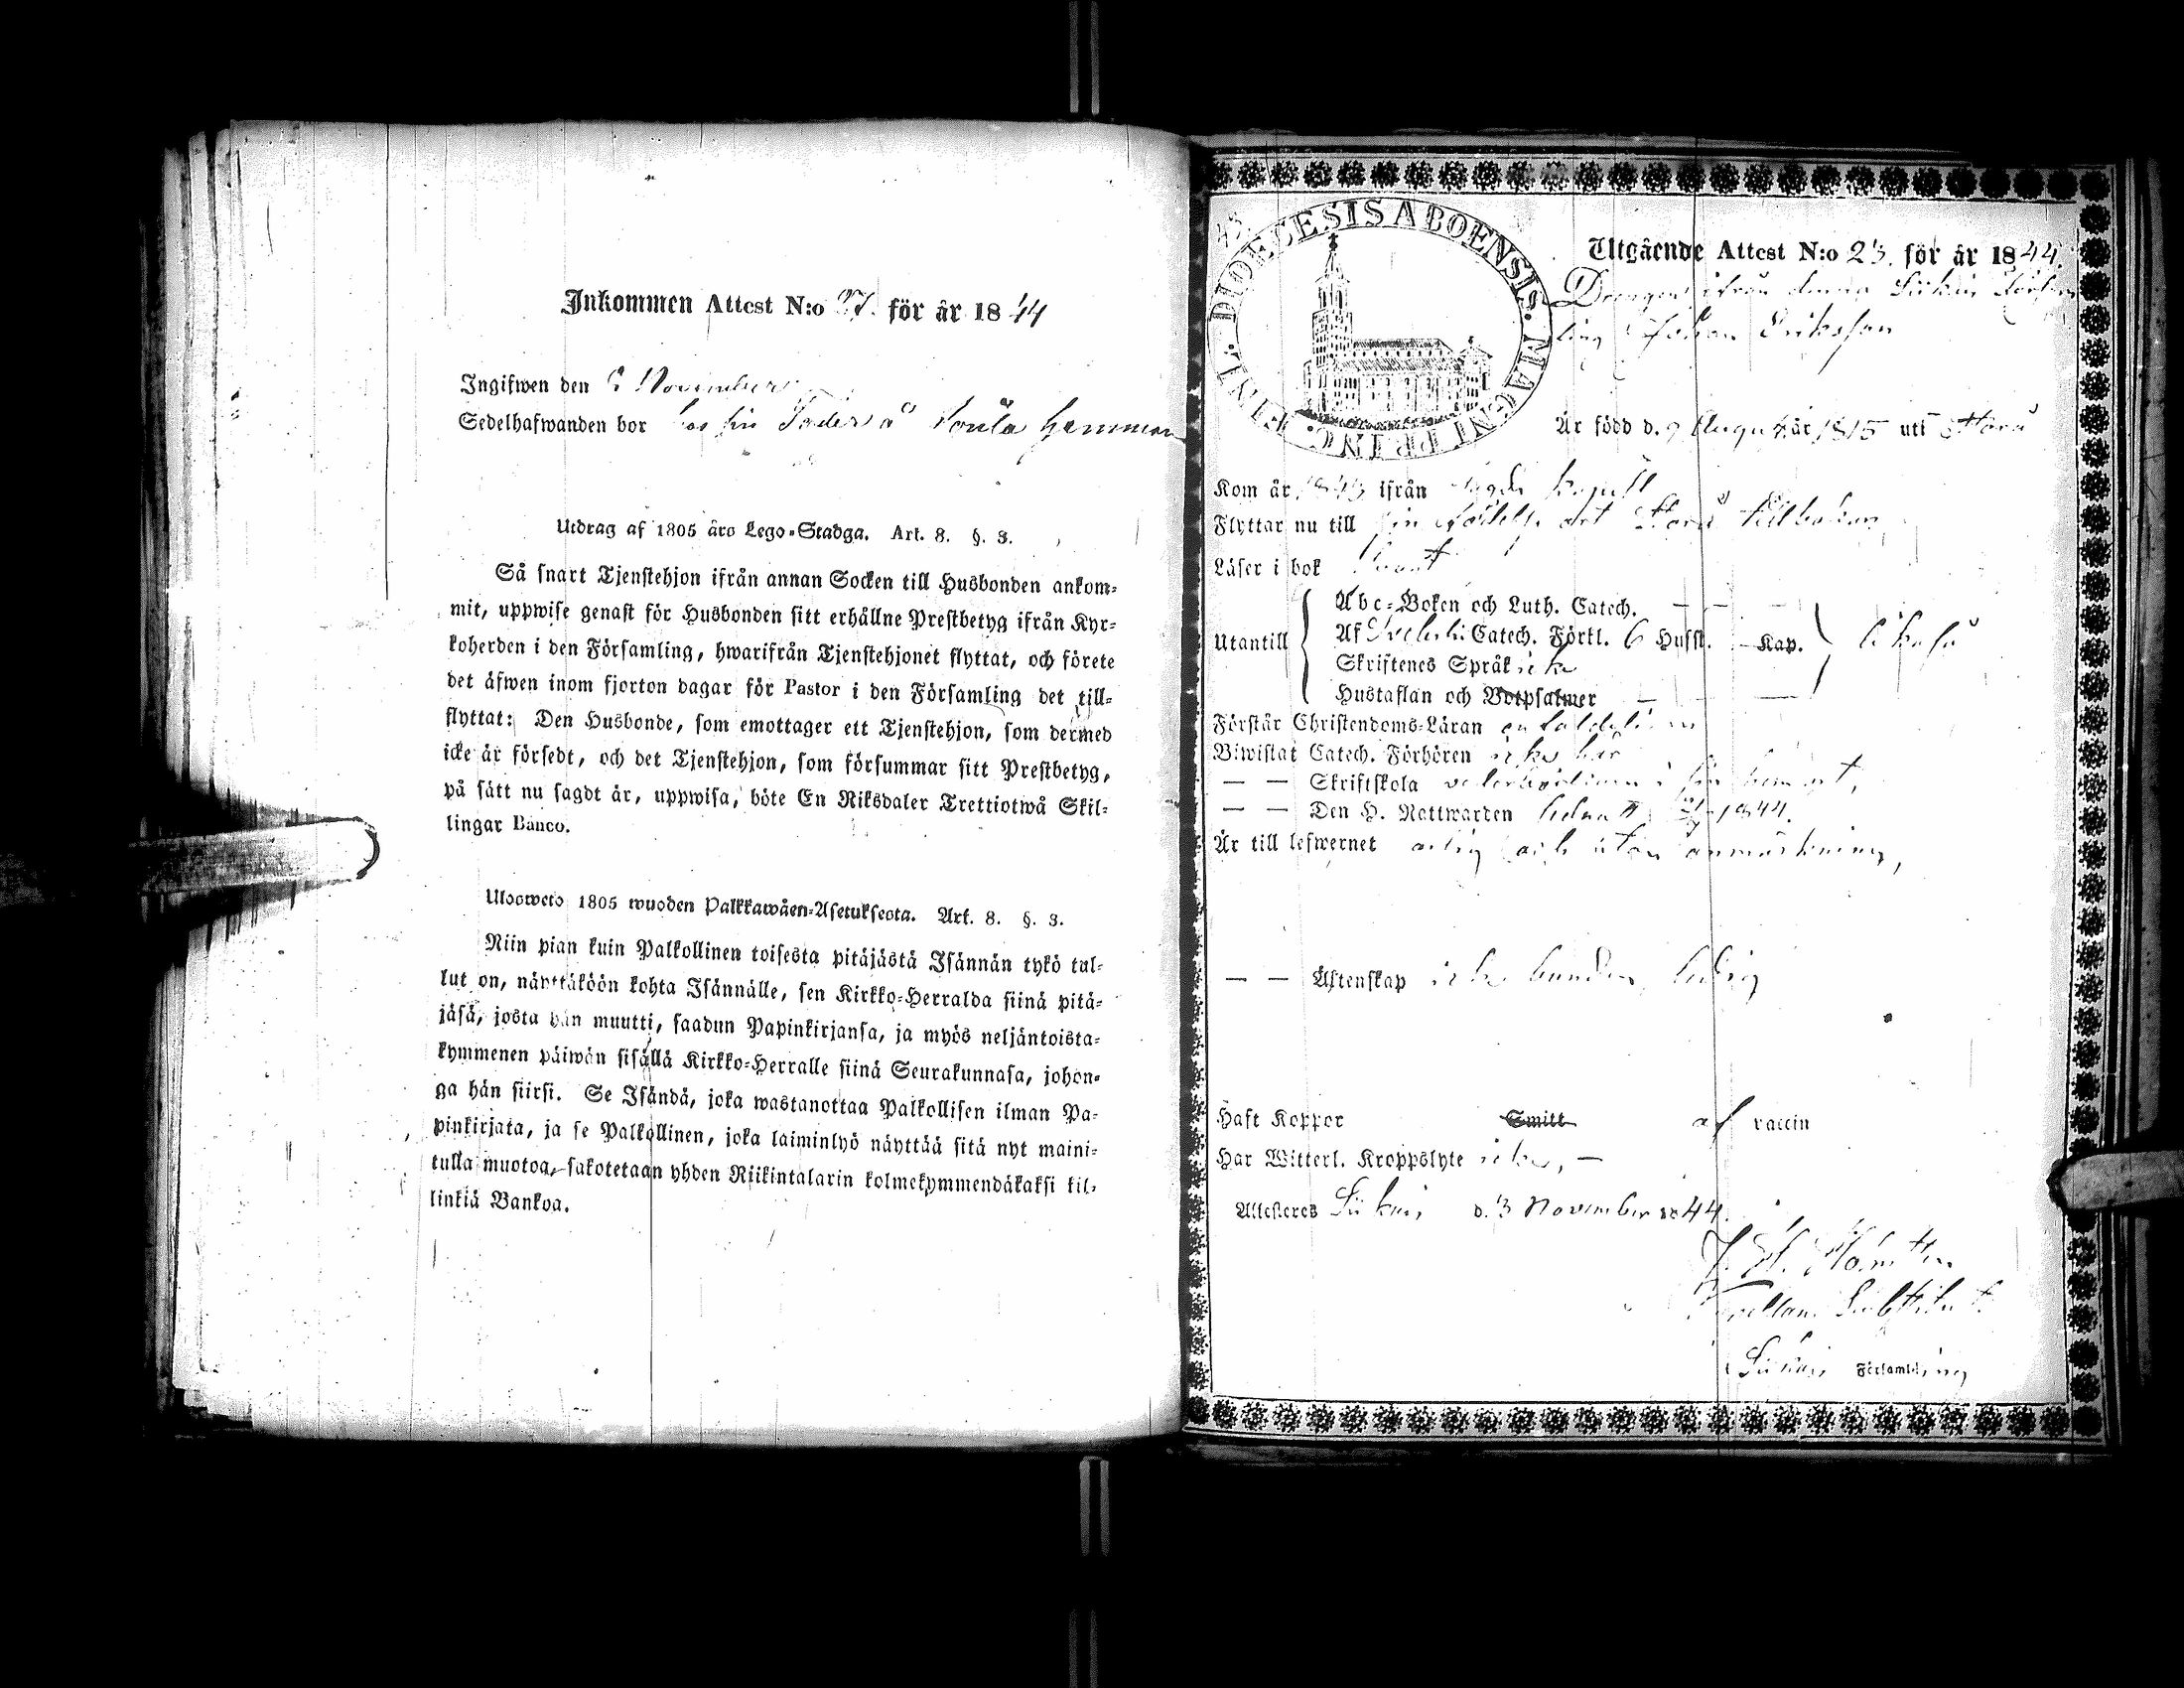 Inkommen Attest N:o 27. för år 1844
Ingifwen den 6 November
Sedelhafwanden bor hos sin Fader å Hemman
Utdrag af 1805 års Lego-Stadga. Art. 8. §. 3.
Så snart Tjenstehjon ifrån annan Socken till Husbonden ankom-
mit, uppwise genast för Husbonden sitt erhållne Prestbetyg ifrån Kyr-
koherden i den Församling, hwarifrån Tjenstehjonet flyttat, och förete
det äfwen inom fjorton dagar för Pastor i den Församling det till-
flyttat: Den Husbonde, som emottager ett Tjenstehjon, som dermed
icke är försedt, och det Tjenstehjon, som försummar sitt Prestbetyg,
på sätt nu sagdt är, uppwisa, böte En Riksdaler Trettiotwå Skil-
lingar Banco.
Ulosweto 1805 wuoden Palkkawäen-Asetuksesta. Art. 8. §. 3.
Niin pian kuin Palkollinen toisesta pitäjästä Isännän tykö tul-
lut on, näyttäköön kohta Isännälle, sen Kirkko-Herralda siinä pitä-
jäsä, josta hän muutti, saadun Papinkirjansa, ja myös neljäntoista-
kymmenen päiwän sisällä Kirkko-Herralle siinä Seurakunnasa, johon-
ga hän siirsi. Se Isändä, joka wastanottaa Palkollisen ilman Pa-
pinkirjata, ja se Palkollinen, joka laiminlyö näyttää sitä nyt maini-
tulla muotoa, sakotetaan yhden Riikintalarin kolmekymmendäkaksi kil-
linkiä Bankoa.
DIOECESIS ABOENSIS. MAGNI PRINC. FINL.
Utgående Attest N:o 23. för år 1844.
Drengen ifrån denna Försam
ling Johan Eriksson
Är född d. 9 Augusti år 1815 uti
Kom år 1843 ifrån
Flyttar nu till sin födelse ort tillbakars
Läser i bok swant
Utantill
Abc-Boken och Luth. Catech. — — —
Af Svebelii Catech. Förkl. 6 Hufst. — Kap. likaså
Skriftenes Språk icke
Hustaflan och Botpsalmer — —
Förstår Christendoms-Läran
Biwistat Catech. Förhören icke här
— — Skriftskola vederbörligen i sin hemort,
— — Den H. Nattwarden sednast 1844.
Är till lefwernet ärlig och utan anmärkning,
— — Ägtenskap icke bunden, ledig
Haft Koppor Smitt af vaccin
Har Witterl. Kroppslyte icke, —
Attesteras d. 3 November 1844.
Församling